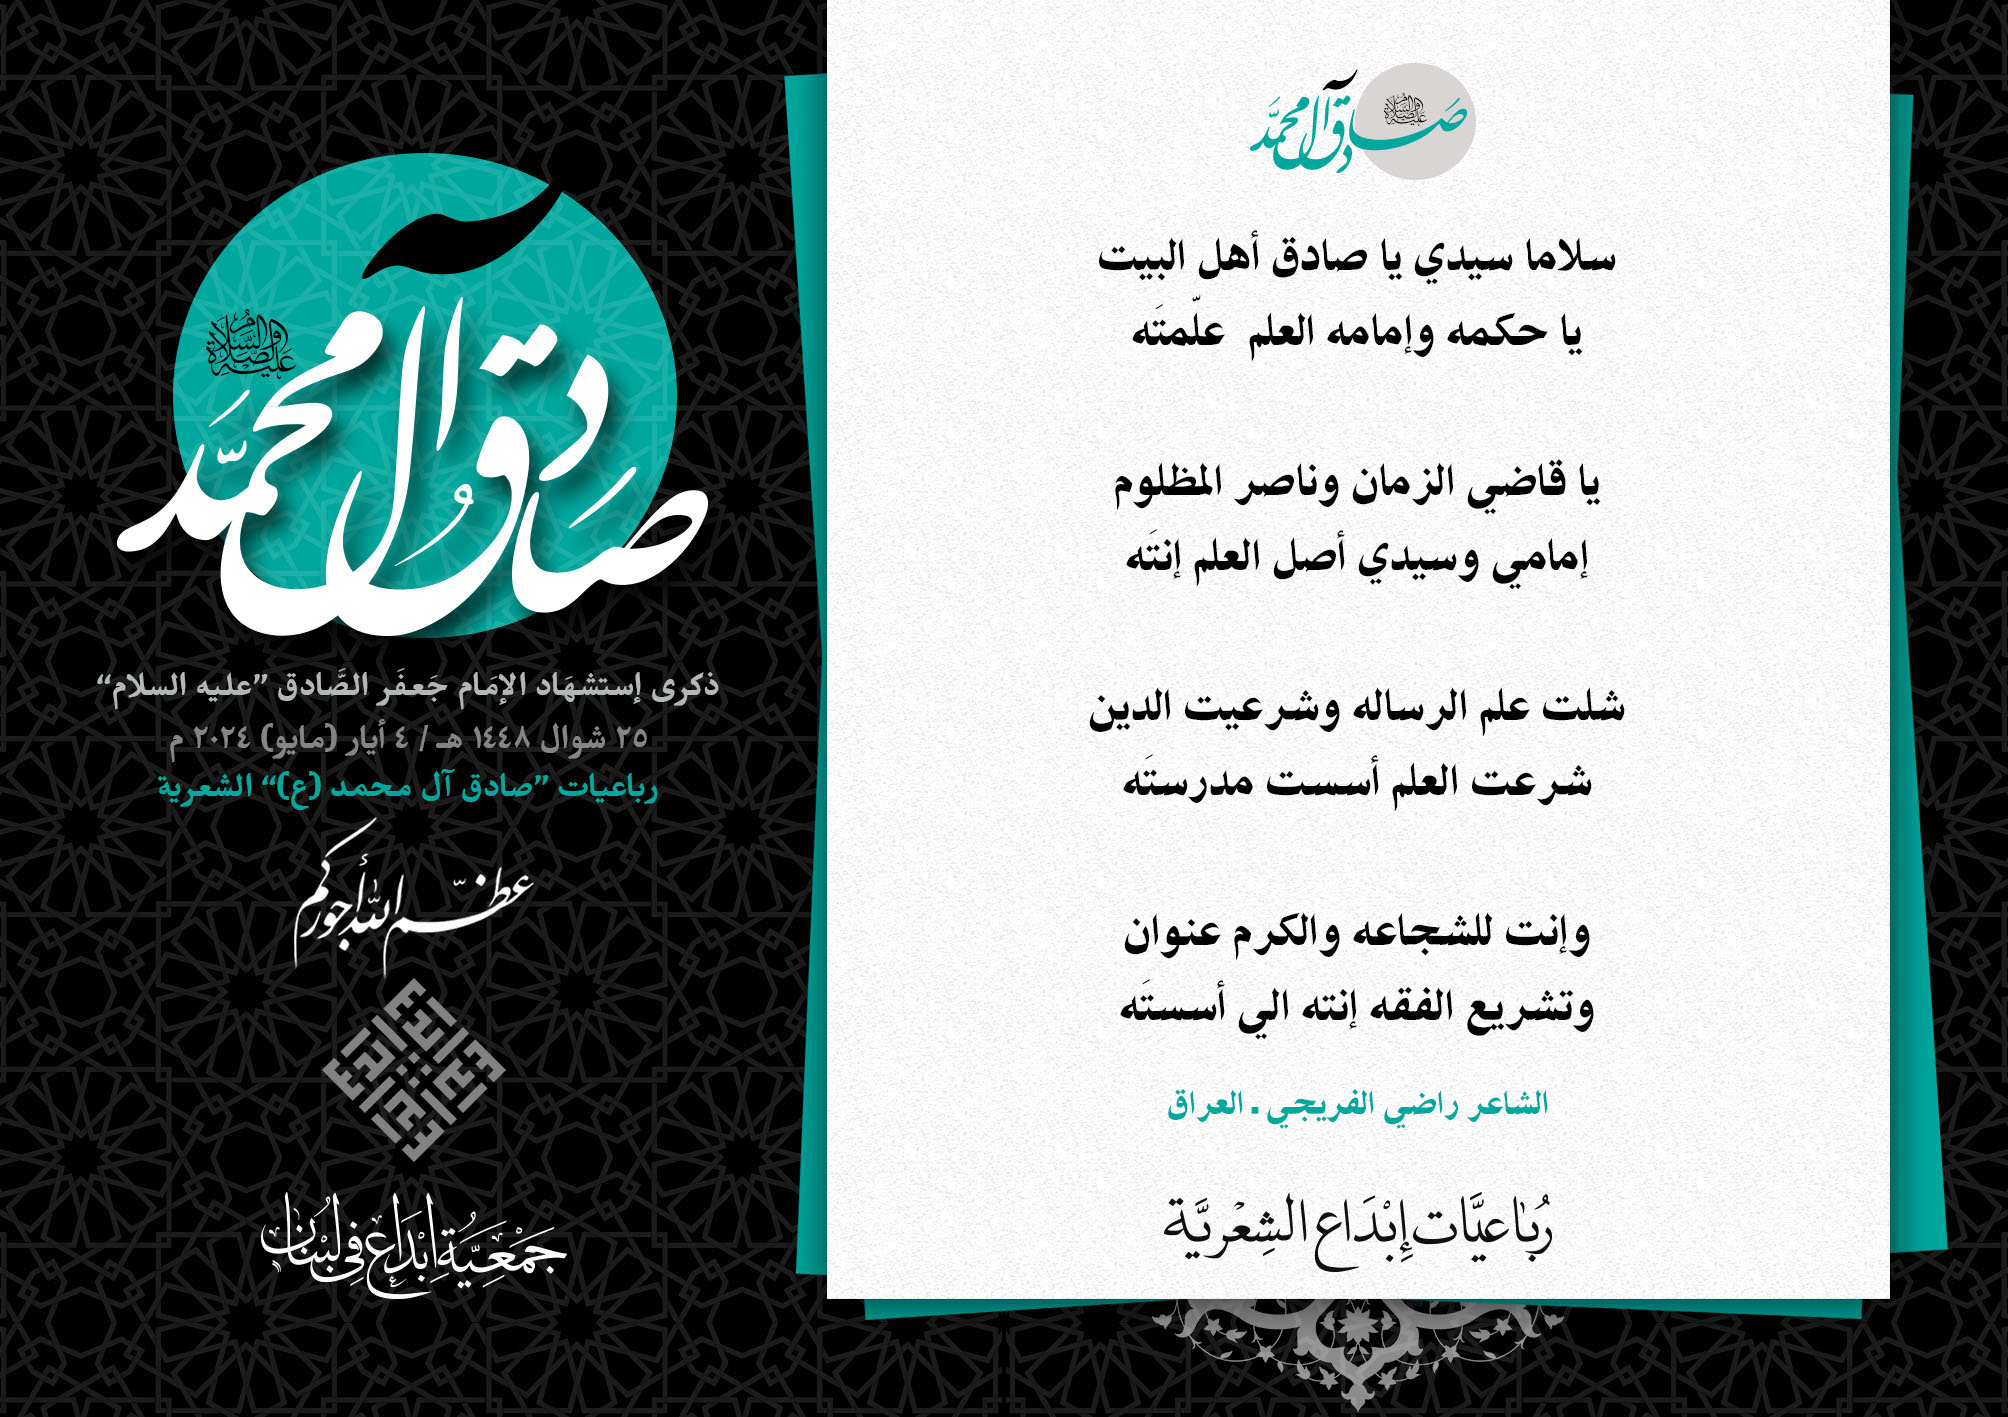 صادق آل محمد
عليه الصلاة والسلام
ذكرى إستشهَاد الإمَام جَعفَر الصَّادق ”عليه السلام“
٢٥ شوال ١٤٤٨ هـ / ٤ أيار (مايو) ٢٠٢٤ م
رباعيات ”صادق آل محمد (ع)“ الشعرية
عظّم الله أجوركم
جَمْعِيَّةُ إِبْدَاع فِي لُبْنَان
صادق آل محمد
عليه الصلاة والسلام
سلاما سيدي يا صادق أهل البيت
يا حكمه وإمامه العلم علّمتَه
يا قاضي الزمان وناصر المظلوم
إمامي وسيدي أصل العلم إنتَه
شلت علم الرساله وشرعيت الدين
شرعت العلم أسست مدرستَه
وإنت للشجاعه والكرم عنوان
وتشريع الفقه إنته الي أسستَه
الشاعر راضي الفريجي . العراق
رُبَاعيَّات إِبْدَاع الشِعْريَّة